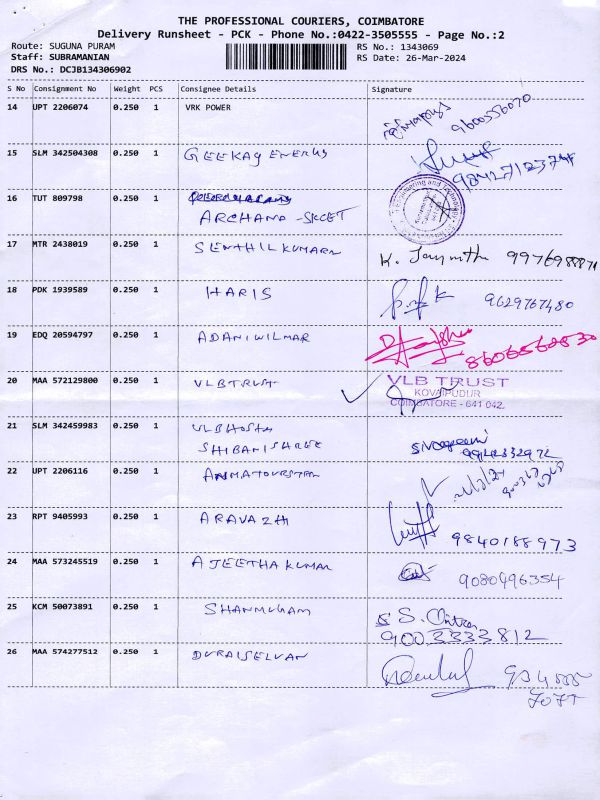 THE PROFESSIONAL COURIERS, COIMBATORE
Delivery Runsheet - PCK - Phone No.:0422-3505555 - Page No.:2
Route: SUGUNA PURAM
RS No.: 1343069
Staff: SUBRAMANIAN
RS Date: 26-Mar-2024
DRS No.: DCJB134306902
S No Consignment No Weight PCS Consignee Details Signature
14 UPT 2206074 0.250 1 VRK POWER
9600556070
15 SLM 342504308 0.250 1 GEEKAY ENERGY
9842712374
16 TUT 809798 0.250 1
ARCHANA -SKCET
17 MTR 2438019 0.250 1 SENTHIL KUMARN
K. Jaynithi 9976988871
18 PDK 1939589 0.250 1 HARIS 9629767480
19 EDQ 20594797 0.250 1 ADANI WILMAR
20 MAA 572129800 0.250 1 VLB TRUST
VLB TRUST
KOVAIPUDUR
COIMBATORE - 641 042.
21 SLM 342459983 0.250 1 VLB HOSTA
SHIBANI SHREE
9942332972
22 UPT 2206116 0.250 1
23 RPT 9405993 0.250 1 ARAVAZHI
9840188973
24 MAA 573245519 0.250 1 AJEETHA KUMAR
9080496354
25 KCM 50073891 0.250 1 SHANMUGAM
S. Chitra
9003333812
26 MAA 574277512 0.250 1 DURAISELVAN